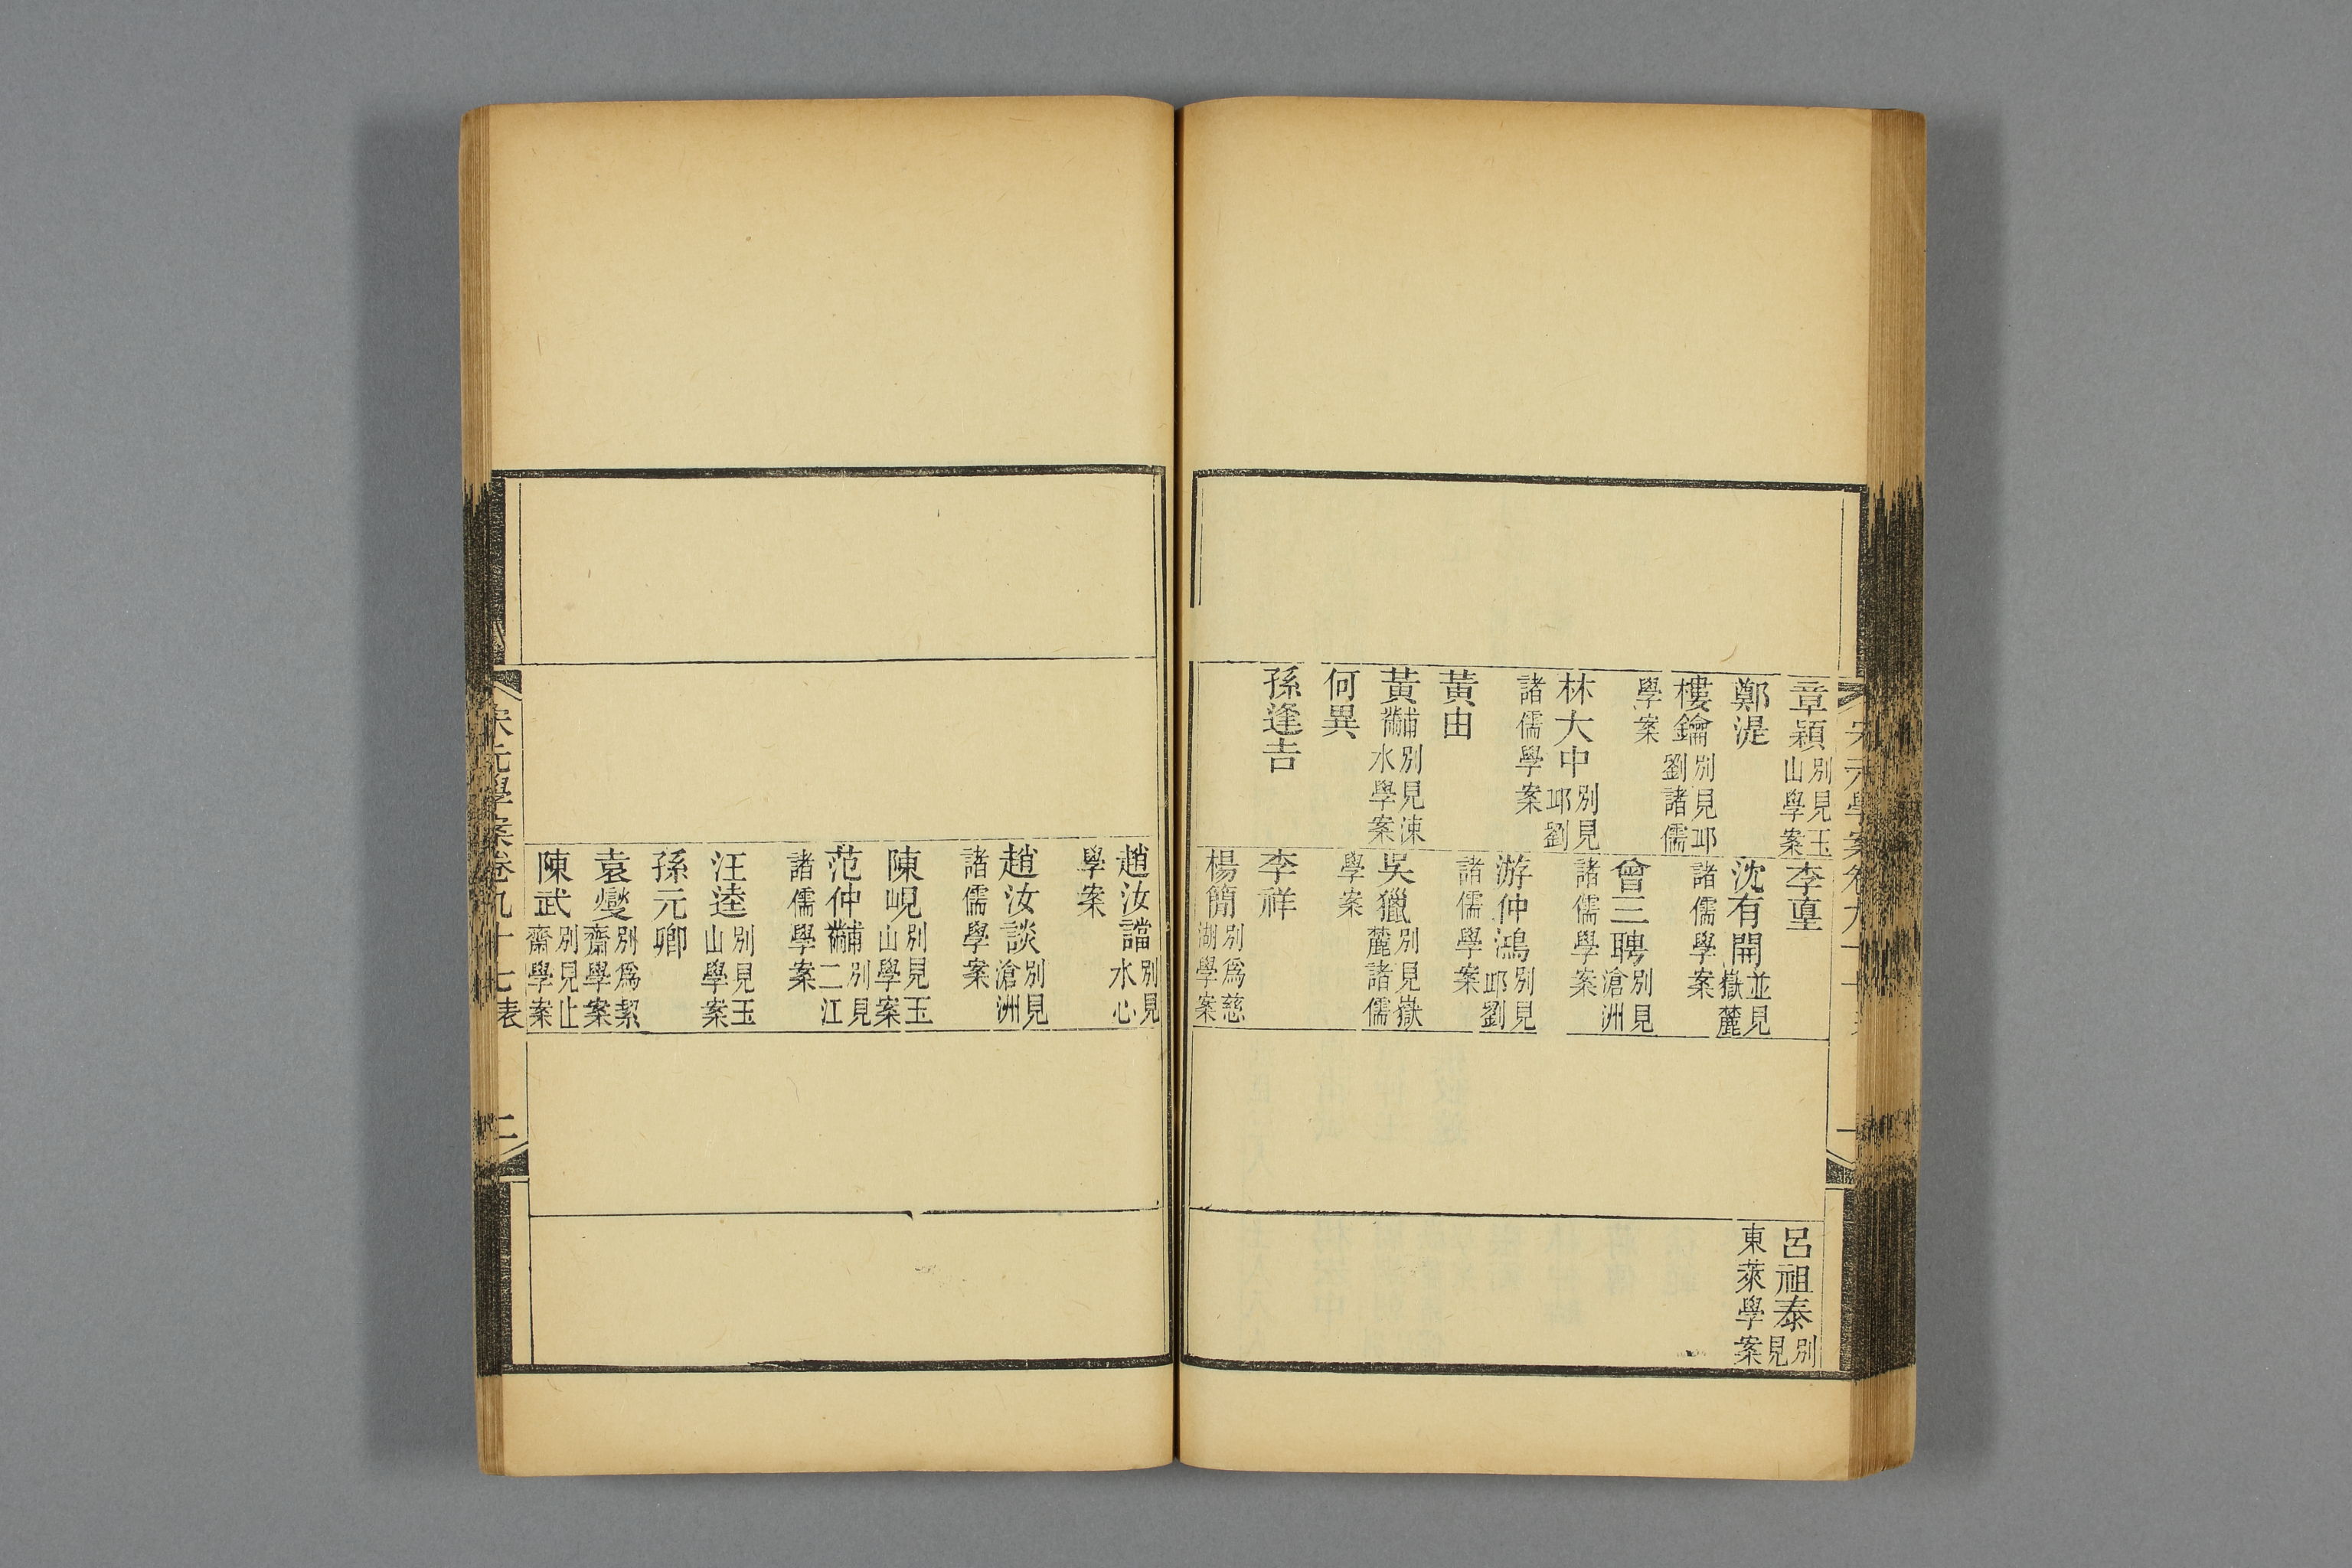 章穎別見玉山學案
鄭湜
樓鑰別見邱劉諸儒學案
林大中別見邱劉諸儒學案
黃由
黃黼別見涑水學案
何異
孫逢吉
李𡌴
沈有開並見嶽麓諸儒學案
曾三聘別見滄洲諸儒學案
游仲鴻別見邱劉諸儒學案
吳獵別見嶽麓諸儒學案
李祥
楊簡別爲慈湖學案
呂祖泰別見東萊學案
趙汝讜別見水心學案
趙汝談別見滄洲諸儒學案
陳峴別見玉山學案
范仲黼別見二江諸儒學案
汪逵別見玉山學案
孫元卿
袁燮別爲絜齋學案
陳武別見止齋學案
宋元學案卷九十七表
二